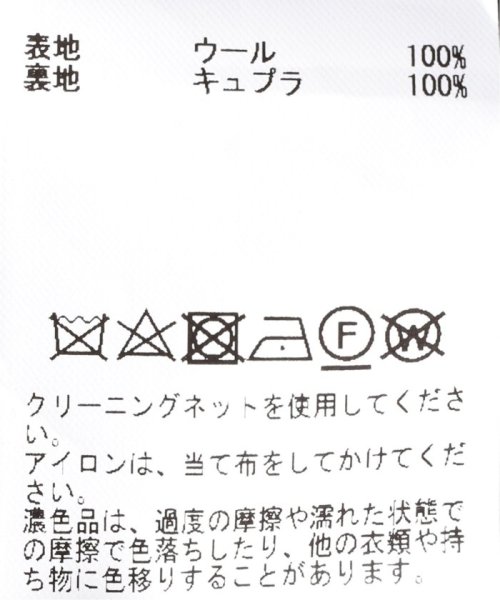 表地 ウール 100%
裏地 キュプラ 100%
F W
クリーニングネットを使用してくださ
い。
アイロンは、当て布をしてかけてくだ
さい。
濃色品は、過度の摩擦や濡れた状態で
の摩擦で色落ちしたり、他の衣類や持
ち物に色移りすることがあります。